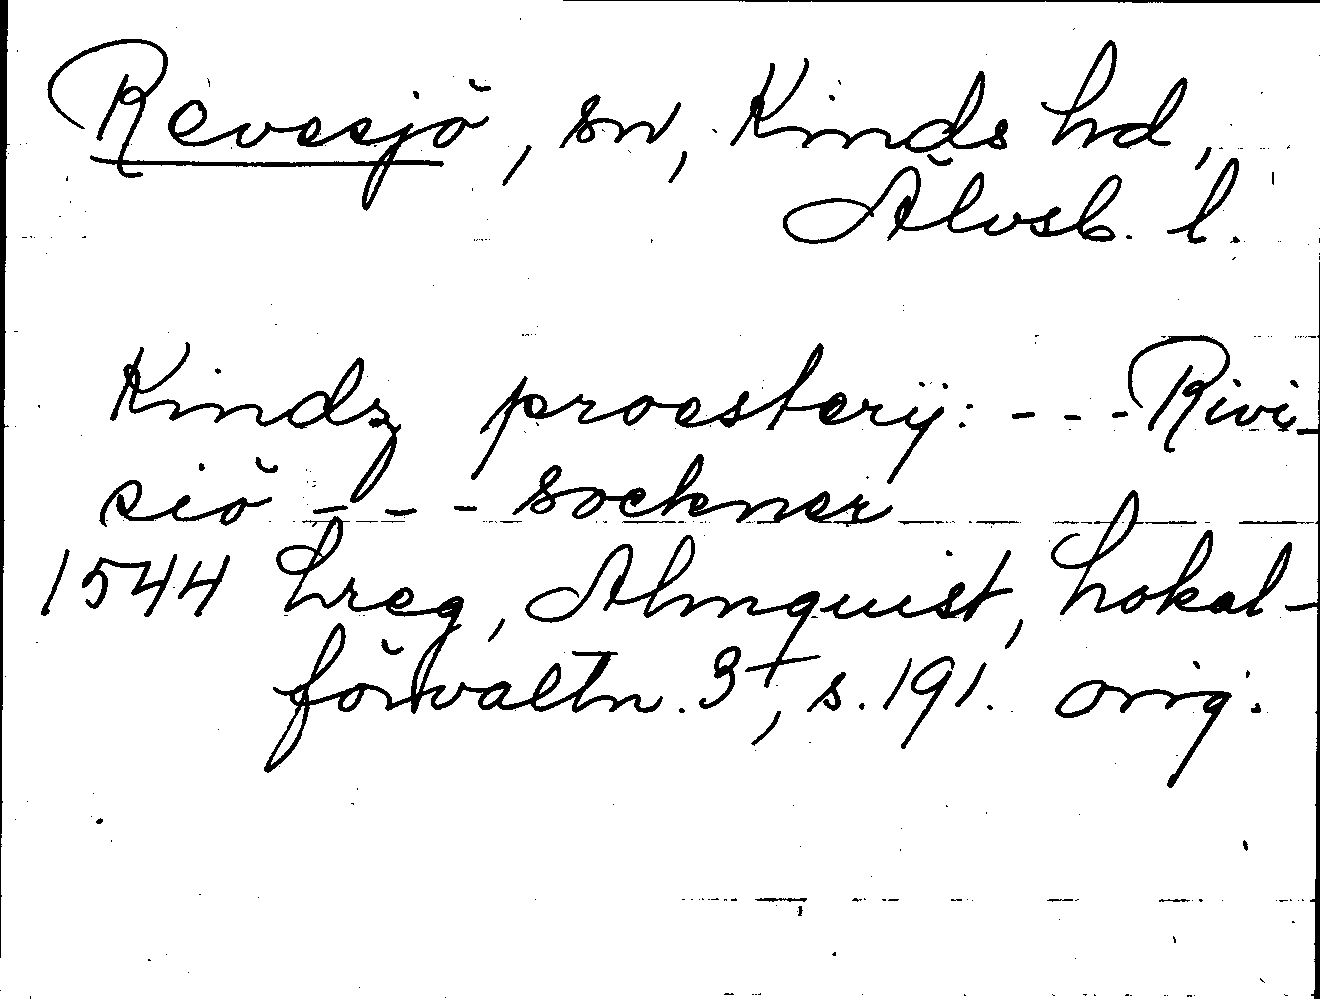 Revesjö, sn, Kinds hd,
Älvsb. l.
Kindz proestery: - - - Rivi-
siö - - - sockner
1544 Lreg, Almquist, Lokal-
förvaltn. 3†, s. 191. orig.